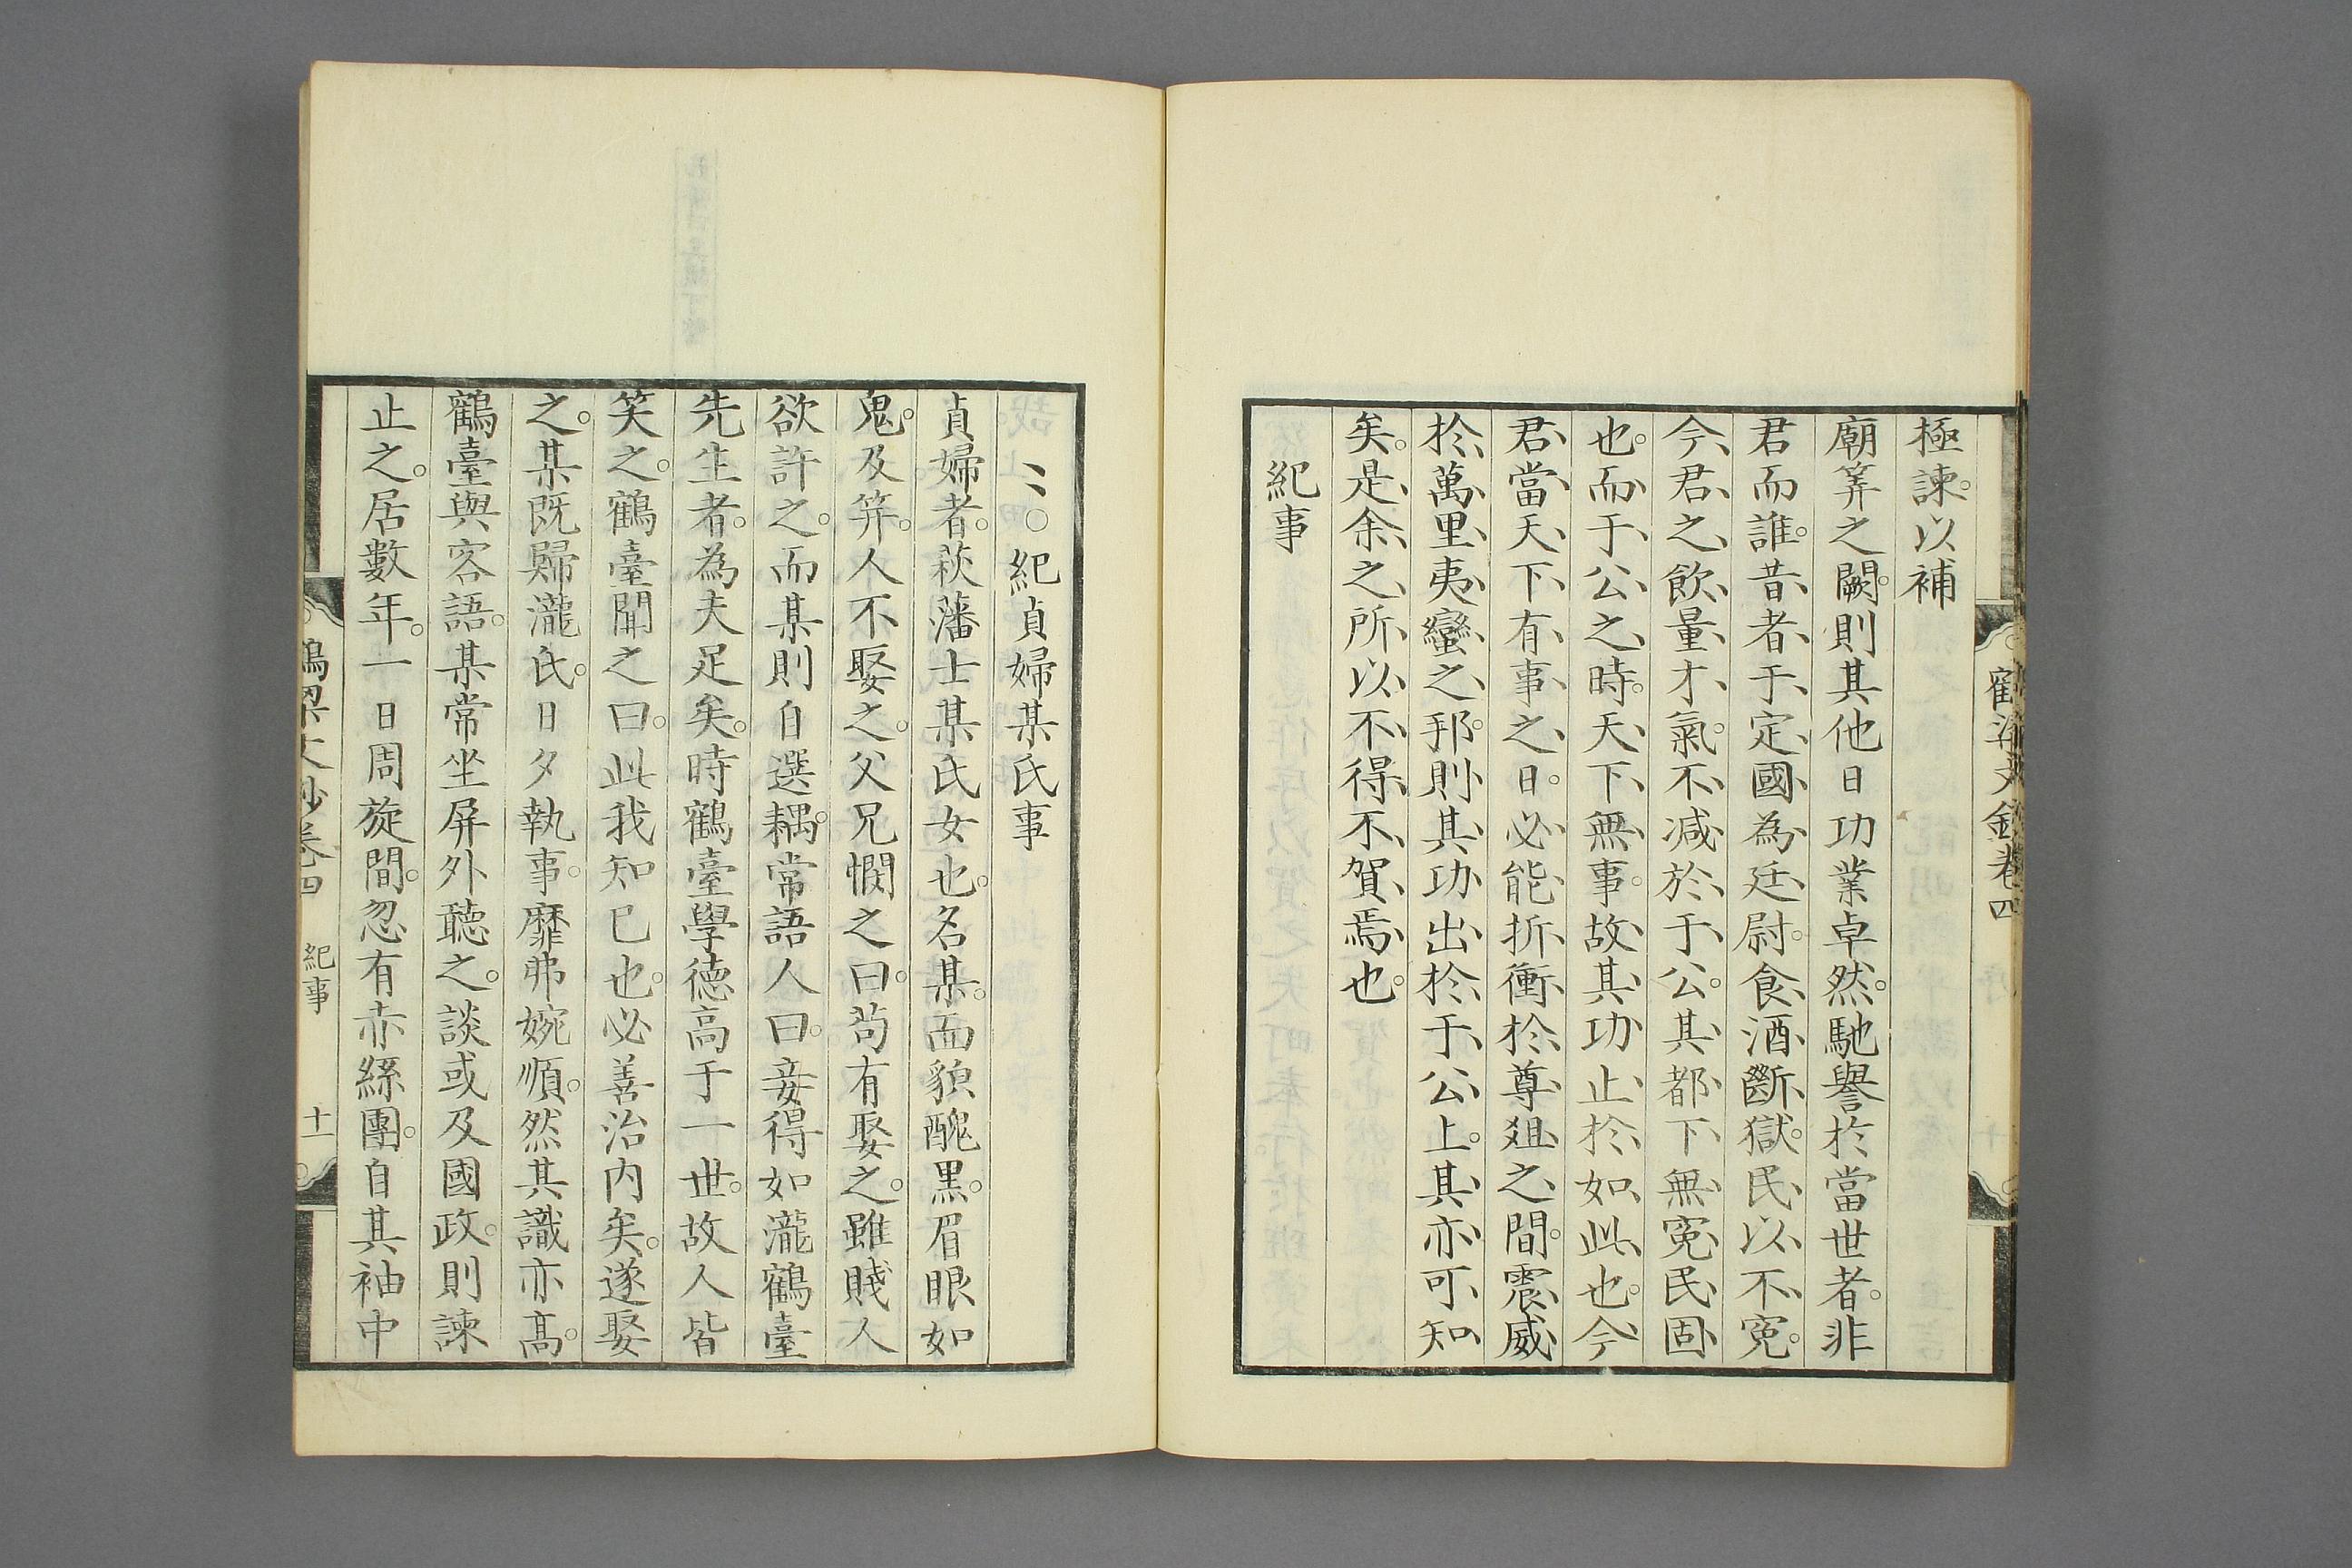 極諫以補
廟筭之闕則其他日功業卓然馳譽於當世者非
君而誰昔者于定國為廷尉食酒斷獄民以不冤
今君之飲量才氣不減於于公其都下無冤民固
也而于公之時天下無事故其功止於如此也今
君當天下有事之日必能折衝於尊爼之間震威
於萬里夷蠻之邦則其功出於于公上其亦可知
矣是余之所以不得不賀焉也
紀事
〻○紀貞婦某氏事
貞婦者萩藩士某氏女也名某面貌醜黑眉眼如
鬼及笄人不娶之父兄憫之曰苟有娶之雖賤人
欲許之而某則自選耦常語人曰妾得如瀧鶴臺
先生者為夫足矣時鶴臺學德高于一世故人皆
笑之鶴臺聞之曰此我知己也必善治内矣遂娶
之某既歸瀧氏日夕執事靡弗婉順然其識亦高
鶴臺與客語某常坐屏外聽之談或及國政則諫
止之居數年一日周旋間忽有赤絲團自其袖中
鶴梁文鈔卷四 紀事 十一